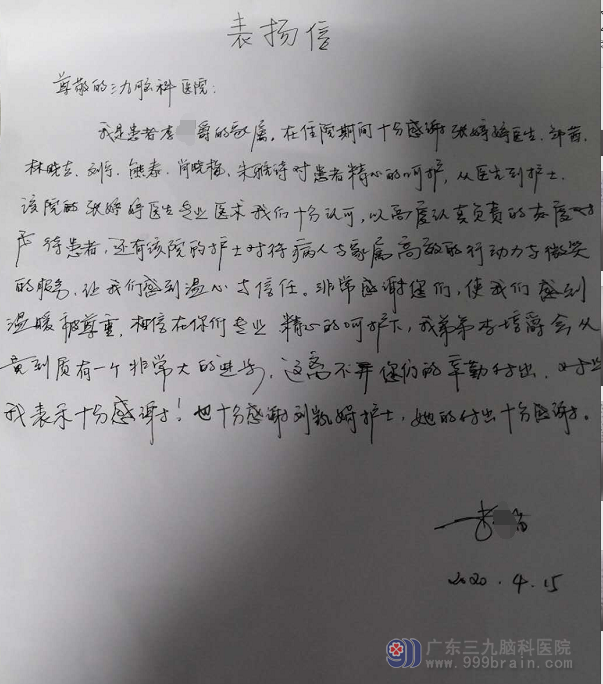 表扬信
尊敬的三九脑科医院:
我是患者李 爵的家属,在住院期间十分感谢张婷婷医生、邹茜、
林晓云、刘子、熊泰、肖晓梅、朱雅诗对患者精心的呵护,从医生到护士
该院的张婷婷医生专业医术我们十分认可,以高度认真负责的态度对
待患者,还有该院的护士对待病人与家属高效的行动力与微笑
的服务,让我们感到温心与信任。非常感谢你们,使我们感到
温暖 被尊重,相信在你们专业 精心的呵护下,我弟弟李培爵会从
量到质有一个非常大的进步,这离不开你们的辛勤付出,对此
我表示十分感谢!也十分感谢刘凯婷护士,她的付出十分感谢。
李
2020.4.15
广东三九脑科医院
www.999brain.com